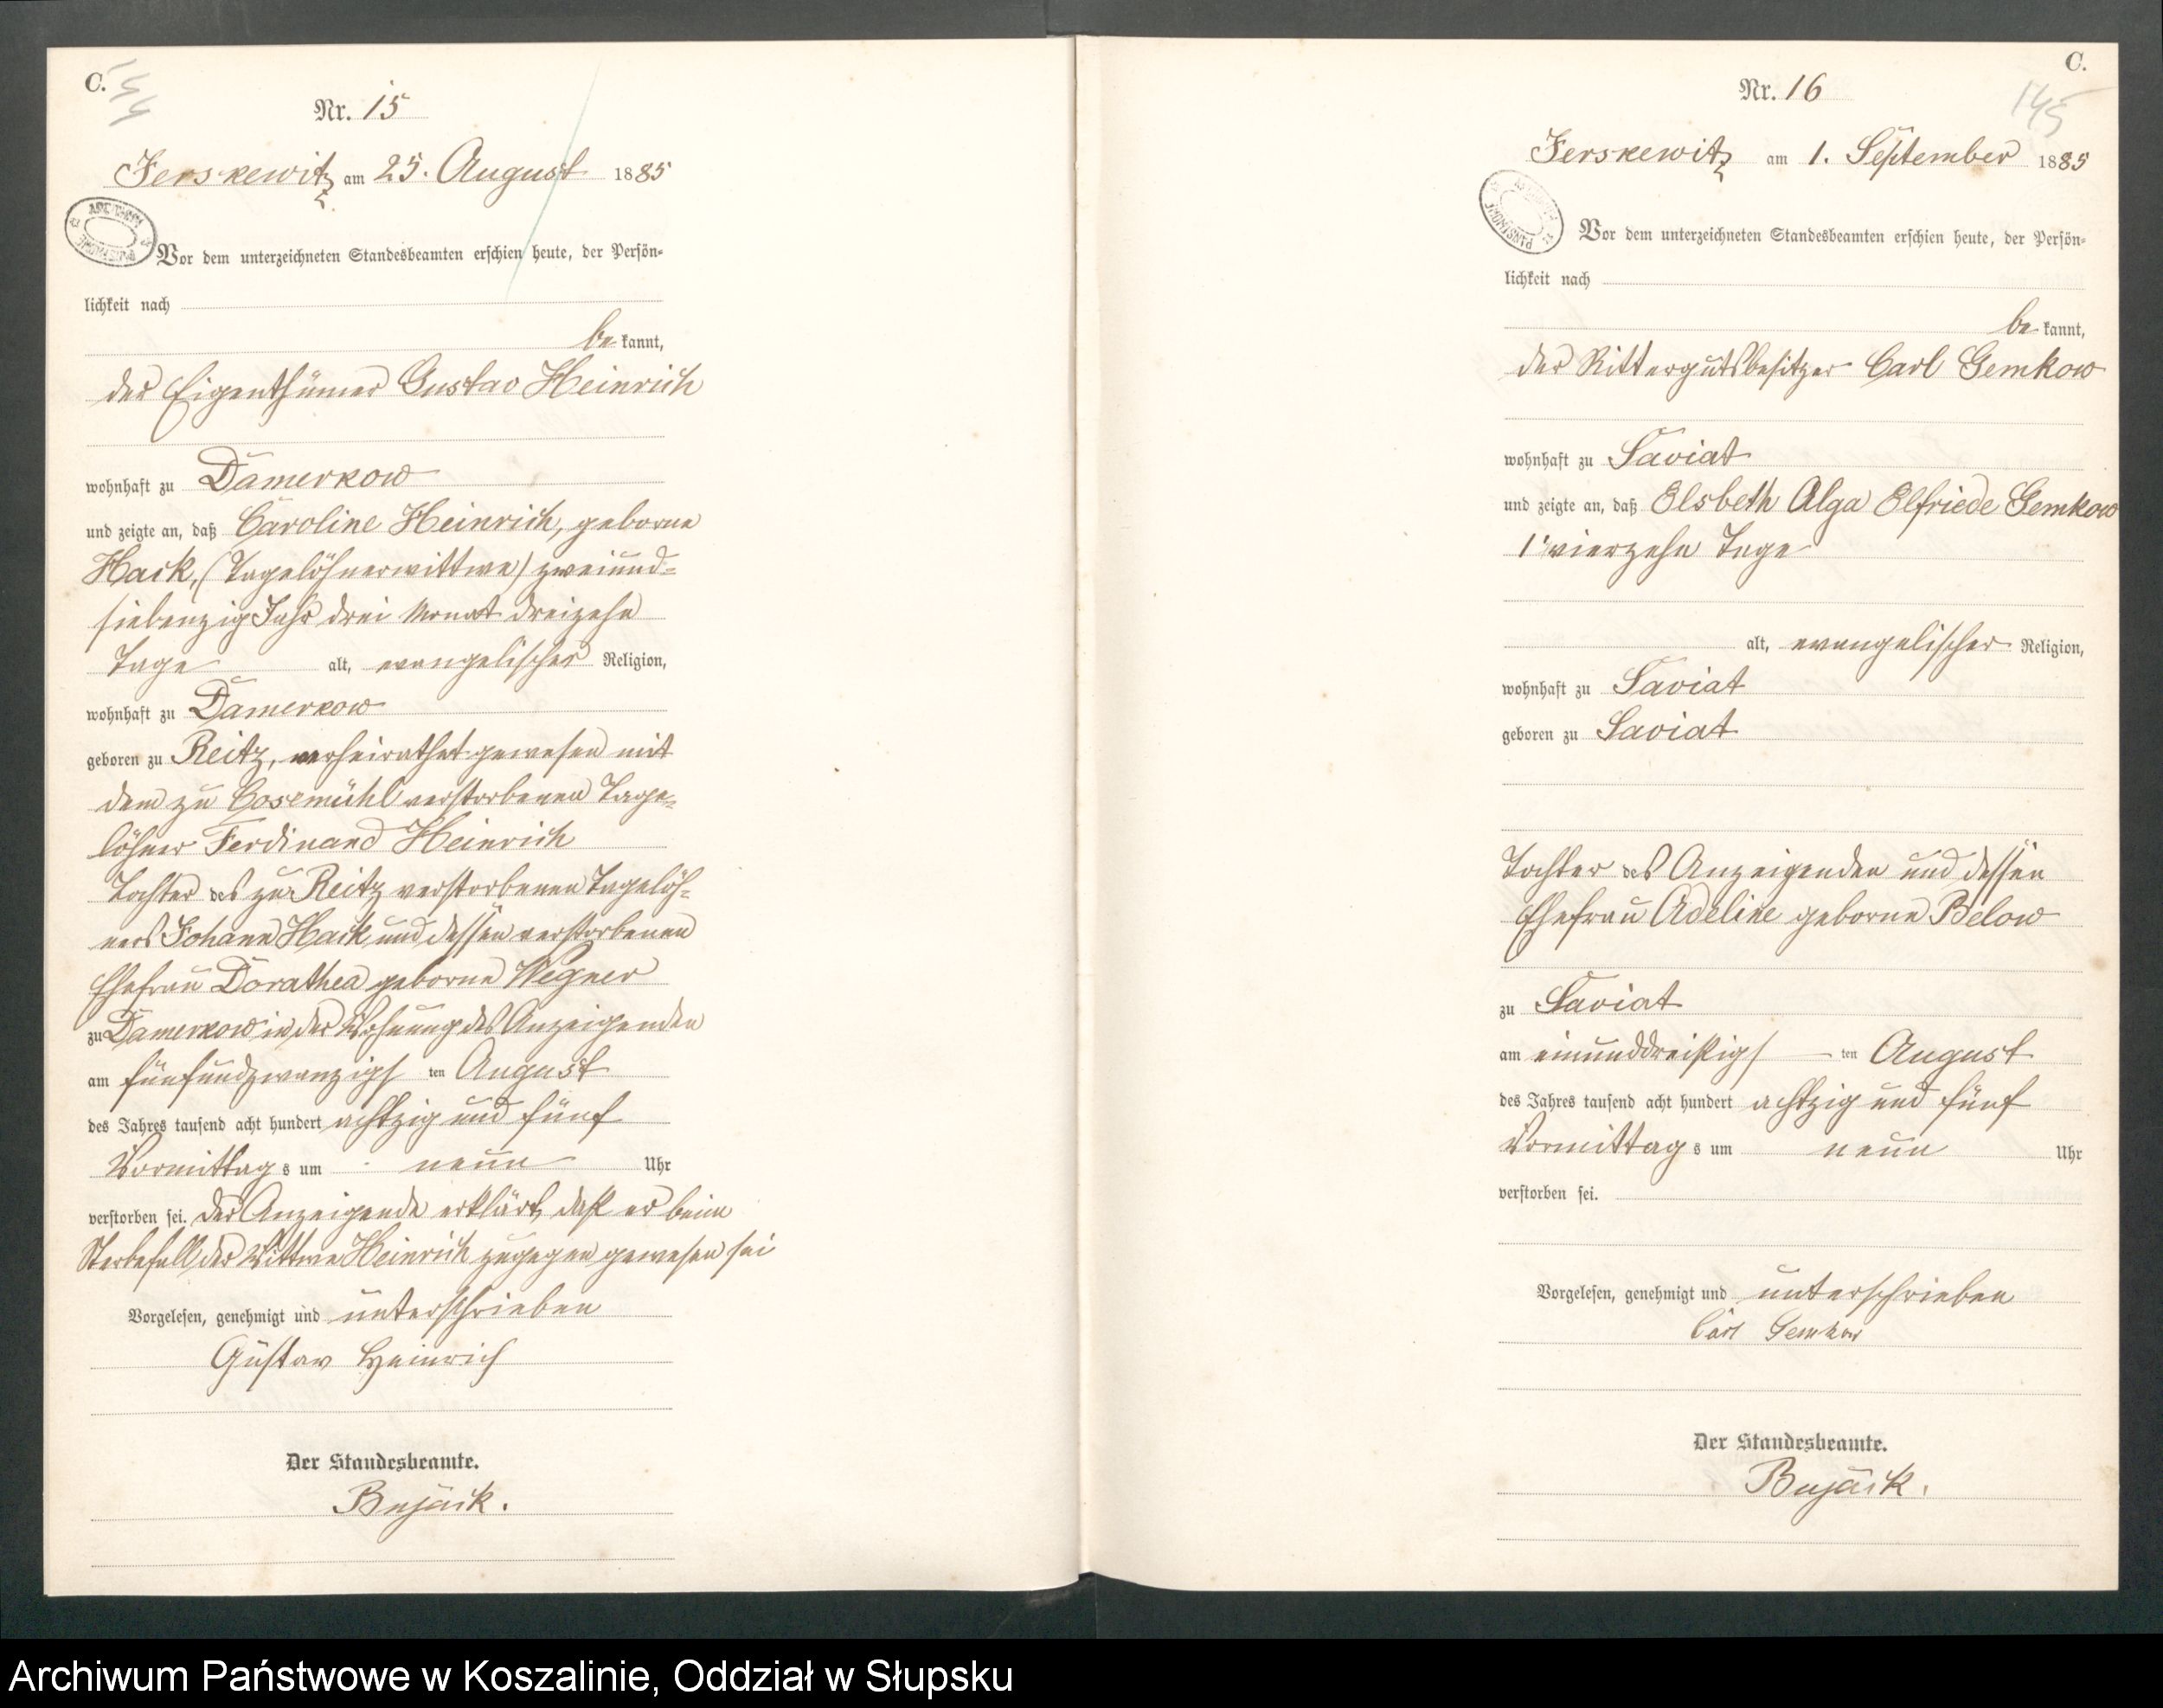 C.
Nr. 15
Jerskewitz am 25. August 1885
Vor dem unterzeichneten Standesbeamten erschien heute, der Persön-
lichkeit nach
be kannt,
der Eigenthümer Gustav Heinrich
wohnhaft zu Damerkow
und zeigte an, daß Caroline Heinrich, geborne
Hack, (Tagelöhnerwittwe) zweiund-
siebenzig Jahr drei Monat dreizehn
Tage alt, evangelischer Religion,
wohnhaft zu Damerkow
geboren zu Reitz, verheirathet gewesen mit
dem zu Cosemühl verstorbenen Tage-
löhner Ferdinand Heinrich
Tochter des zu Reitz verstorbenen Tagelöh-
ners Johann Hack und dessen verstorbenen
Ehefrau Dorathea geborne Wegner
zu Damerkow in der Wohnung des Anzeigenden
am fünfundzwanzigs ten August
des Jahres tausend acht hundert achtzig und fünf
Vormittag s um neun Uhr
verstorben sei. Der Anzeigende erklärt, daß er beim
Sterbefall der Wittwe Heinrich zugegen gewesen sei
Vorgelesen, genehmigt und unterschrieben
Gustav Heinrich
Der Standesbeamte.
Bujack.
C.
145
Nr. 16
Jerskewitz am 1. September 1885
Vor dem unterzeichneten Standesbeamten erschien heute, der Persön-
lichkeit nach
be kannt,
der Rittergutsbesitzer Carl Gemkow
wohnhaft zu Saviat
und zeigte an, daß Elsbeth Alga Elfriede Gemkow
vierzehn Tage
alt, evangelischer Religion,
wohnhaft zu Saviat
geboren zu Saviat
Tochter des Anzeigenden und dessen
Ehefrau Adeline geborne Below
zu Saviat
am einunddreißigs ten August
des Jahres tausend acht hundert achtzig und fünf
Vormittag s um neun Uhr
verstorben sei.
Vorgelesen, genehmigt und unterschrieben
Carl Gemkow
Der Standesbeamte.
Bujack.
Archiwum Państwowe w Koszalinie, Oddział w Słupsku